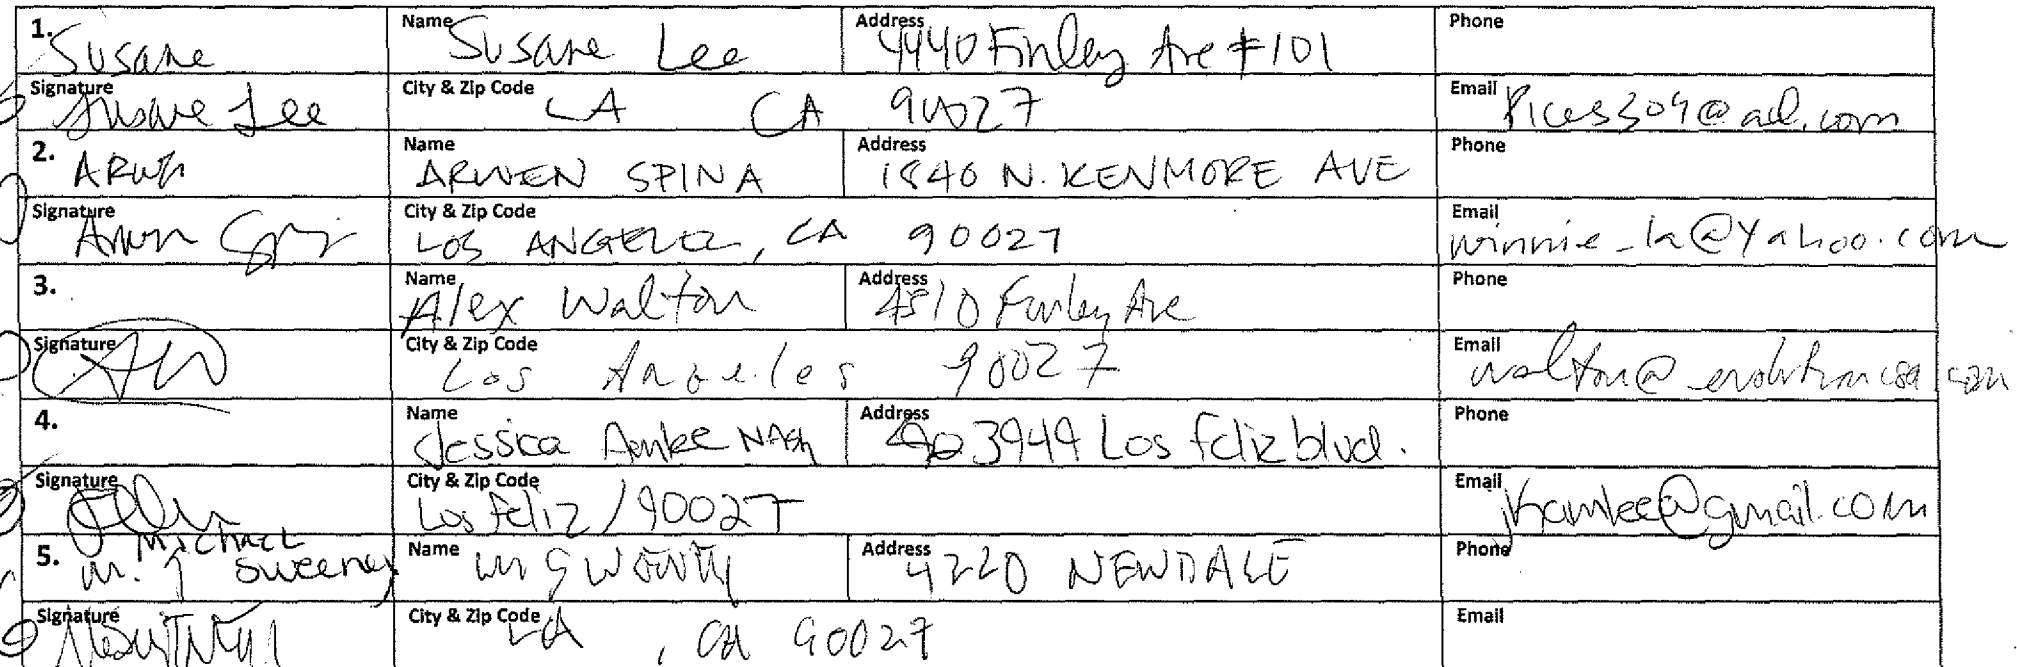 1. Susane Name Susane Lee Address 4440 Finley Ave #101 Phone
Signature Susane Lee City & Zip Code LA CA 90027 Email Pices304@aol.com
2. Arwen Name ARWEN SPINA Address 1840 N. KENMORE AVE Phone
Signature Arwen City & Zip Code LOS ANGELES, CA 90027 Email winnie_la@yahoo.com
3. Name Alex Walton Address 4810 Finley Ave Phone
Signature AW City & Zip Code Los Angeles 90027 Email walton@evolutionusa.com
4. Name Jessica NASH Address 3949 Los Feliz blvd. Phone
Signature City & Zip Code Los Feliz / 90027 Email jhamlee@gmail.com
Michael
5. M. Sweeney Name M SWEENEY Address 4220 NEWDALE Phone
Signature City & Zip Code LA, CA 90027 Email